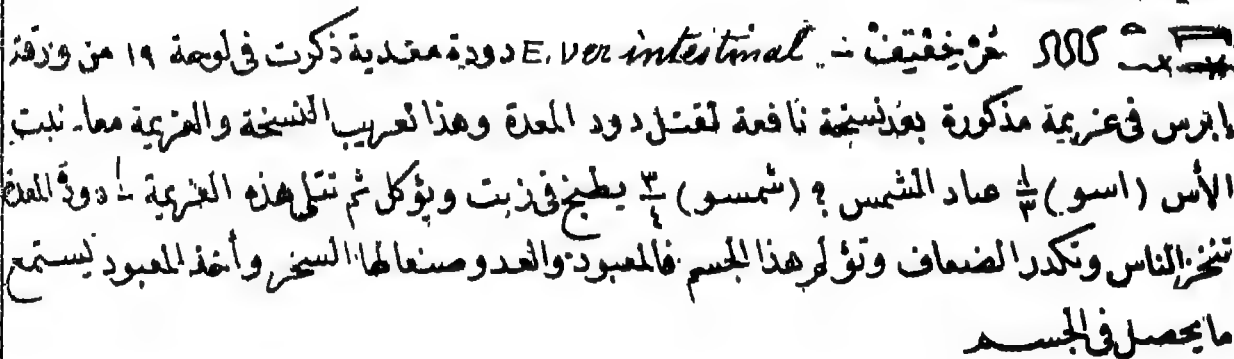 E. ver intestinal - دودية معدية ذكرت في لوحة ١٩ من ورقة
إبرس في عزيمة مذكورة بعد نسخة نافعة لقتل دود المعدة وهذا تعريب النسخة والعزيمة معا. نبت
الأس (اسو) ١/٣ عباد الشمس ? (شمسو) ٣/٤ يطبخ في زيت ويؤكل ثم تتلى هذه العزيمة - دودة المعدة
تنخز الناس وتكدر الضعاف وتؤلم هذا الجسم فالمعبود والعدو صنعا لها السحر وأخذ المعبود يستمع
ما يحصل في الجسم